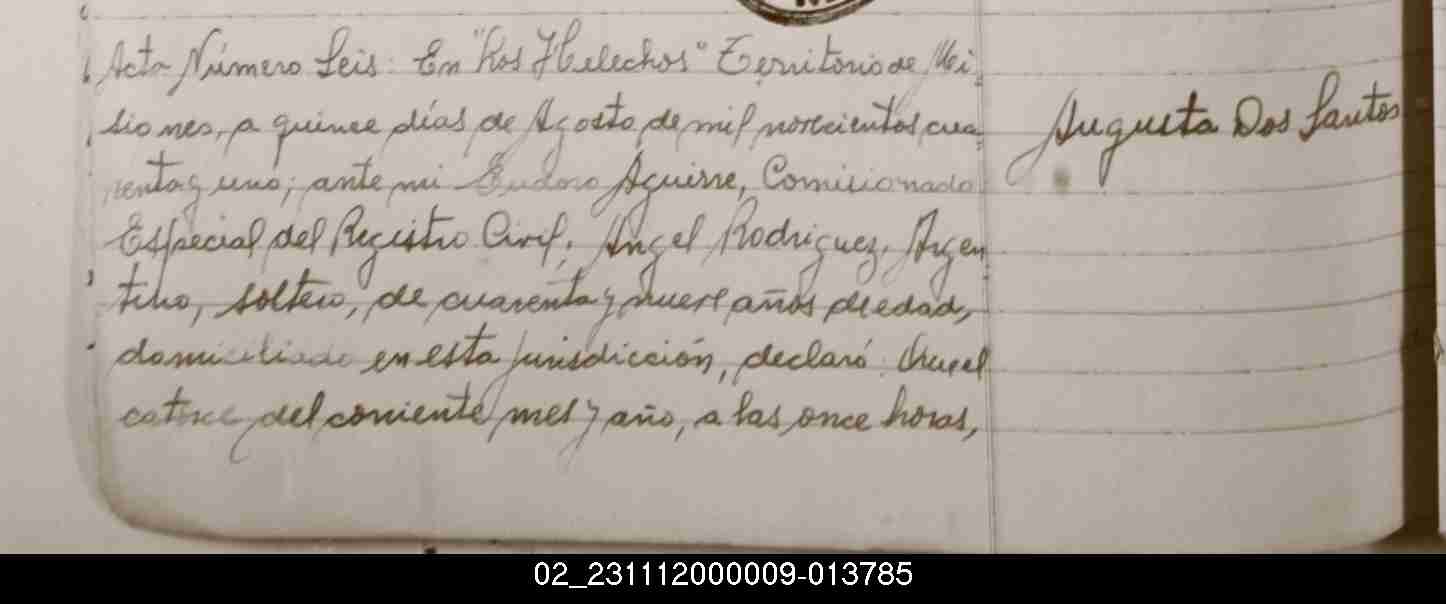 Acta Número Seis: En "Los Helechos" Territorio de Mi
siones, a quince días de Agosto de mil novecientos cua
renta y uno; ante mi Eudoro Aguirre, Comisionado
Especial del Registro Civil, Angel Rodriguez, Argen
tino, soltero, de cuarenta y nueve años de edad,
domiciliado en esta jurisdicción, declaró: Que el
catorce del corriente mes y año, a las once horas,
Augusta Dos Santos
02_231112000009-013785